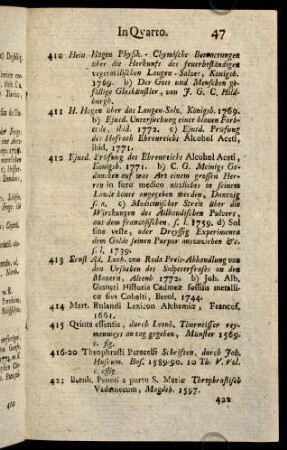 In Qvarto. 47
410 Hein. Hagen Physik.-Chymische Betrachtungen
über die Herkunft des feuerbeständigen
vegetabilischen Laugen-Salzes, Königsb.
1769. b) Der Gott und Menschen ge-
fällige Gleskünstler, von J. G. C. Hild-
burgh.
411 H. Hagen über das Laugen-Salz, Königsb. 1769.
b) Ejusd. Untersuchung einer blauen Farb-
erde, ibid. 1772. c) Ejusd. Prüfung
des Hofrath Ehrenreichs Alcohol Aceti,
ibid. 1771.
412 Ejusd. Prüfung des Ehrenreichs Alcohol Aceti,
Königsb. 1771. b) C. G. Meinigs Ge-
danken auf was Art einem grossen Her-
rn in foro medico nützliches in seinem
Lande könne angegeben werden, Dantzig
s. a. c) Medicinischer Streit über die
Wirckungen des Ailhaudischen Pulvers,
aus dem französischen, s. l. 1759. d) Sol
sine veste, oder Dreyssig Experimenta
dem Golde seinen Purpur auszuziehen &c.
s. l. 1739.
413 Ernst Ad. Ludw. von Rada Preis-Abhandlung von
den Ursachen des Salpeterfrasses an den
Mauern, Altenb 1772. b) Joh. Alb.
Gesneri Historia Cadmeæ fossilis metalli-
cæ sive Cobalti, Berol. 1744.
414 Mart. Rulandi Lexicon Alchemiæ, Francof.
1661.
415 Qvinta essentia, durch Leonh. Thurneisser
an tag gegeben, Münster 1569.
c. fig.
416-20 Theophrasti Paracelsi Schriften, durch Joh.
Huserum. Bas. 1589-90. 10 Th. V. Vol.
c. effig.
421 Bernh. Penoti a portu S. Mariæ Theophrastisch
Vademecum, Magdeb. 1597.
422